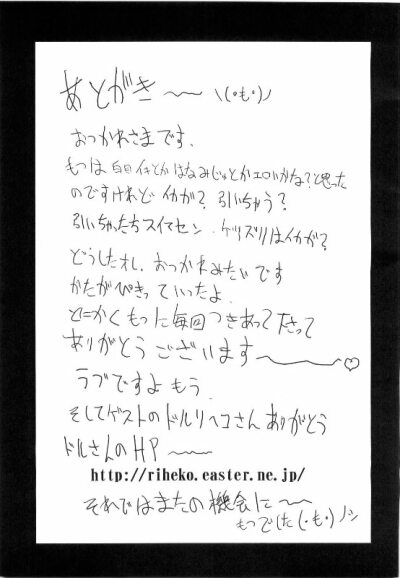 あとがき〜〜 \(・も・)ノ
おつかれさまです。
もつは白目イキとかはなみじゅとかエロいかな?と思った
のですけれど イカが? 引いちゃう?
引いちゃったらスイマセン。ゲリズリはイカが?
どうしたオレ。おつかれみたいです
かたがぴきっていったよ。
とにかくもつに毎回つきあって下さって
ありがとうございます〜〜♡
ラブですよ もう。
そしてゲストのドルリヘコさん ありがとう
ドルさんのHP 〜〜
http://riheko.easter.ne.jp/
それではまたの機会に〜〜
もつでした(・も・)ノシ